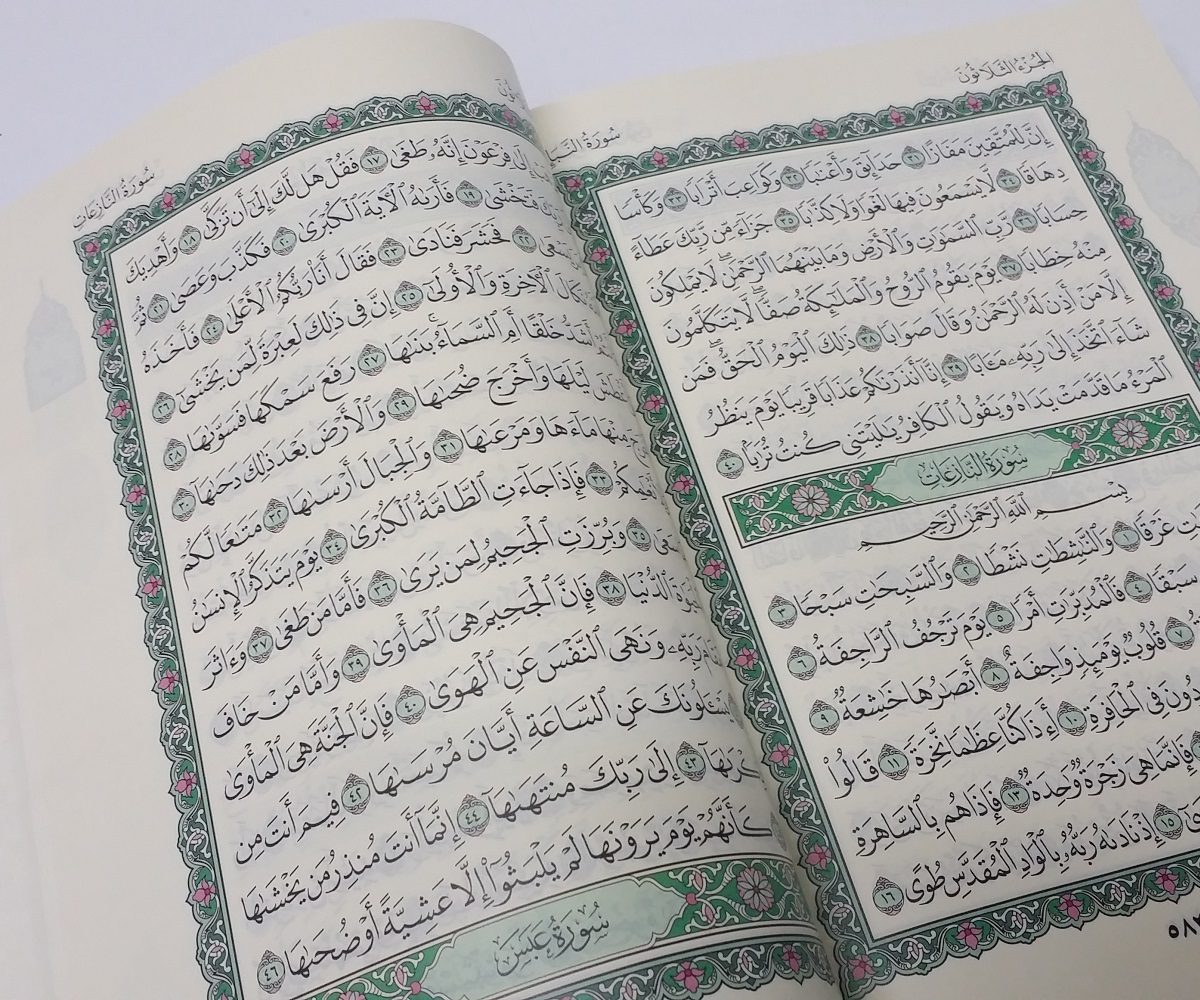 الجُزْءُ الثَّلَاثُونَ
سُورَةُ
إِنَّ لِلْمُتَّقِينَ مَفَازًا ٣١ حَدَآئِقَ وَأَعْنَٰبًا ٣٢ وَكَوَاعِبَ أَتْرَابًا ٣٣ وَكَأْسًا
دِهَاقًا ٣٤ لَّا يَسْمَعُونَ فِيهَا لَغْوًا وَلَا كِذَّٰبًا ٣٥ جَزَآءً مِّن رَّبِّكَ عَطَآءً
حِسَابًا ٣٦ رَّبِّ ٱلسَّمَٰوَٰتِ وَٱلْأَرْضِ وَمَا بَيْنَهُمَا ٱلرَّحْمَٰنِ ۖ لَا يَمْلِكُونَ
مِنْهُ خِطَابًا ٣٧ يَوْمَ يَقُومُ ٱلرُّوحُ وَٱلْمَلَٰٓئِكَةُ صَفًّا ۖ لَّا يَتَكَلَّمُونَ
إِلَّا مَنْ أَذِنَ لَهُ ٱلرَّحْمَٰنُ وَقَالَ صَوَابًا ٣٨ ذَٰلِكَ ٱلْيَوْمُ ٱلْحَقُّ ۖ فَمَن
شَآءَ ٱتَّخَذَ إِلَىٰ رَبِّهِۦ مَـَٔابًا ٣٩ إِنَّآ أَنذَرْنَٰكُمْ عَذَابًا قَرِيبًا يَوْمَ يَنظُرُ
ٱلْمَرْءُ مَا قَدَّمَتْ يَدَاهُ وَيَقُولُ ٱلْكَافِرُ يَٰلَيْتَنِى كُنتُ تُرَٰبًۢا ٤٠
سُورَةُ النَّازِعَاتِ
بِسْمِ ٱللَّهِ ٱلرَّحْمَٰنِ ٱلرَّحِيمِ
غَرْقًا ١ وَٱلنَّٰشِطَٰتِ نَشْطًا ٢ وَٱلسَّٰبِحَٰتِ سَبْحًا ٣
سَبْقًا ٤ فَٱلْمُدَبِّرَٰتِ أَمْرًا ٥ يَوْمَ تَرْجُفُ ٱلرَّاجِفَةُ ٦
٧ قُلُوبٌ يَوْمَئِذٍ وَاجِفَةٌ ٨ أَبْصَٰرُهَا خَٰشِعَةٌ ٩
فِى ٱلْحَافِرَةِ ١٠ أَءِذَا كُنَّا عِظَٰمًا نَّخِرَةً ١١ قَالُوا۟
فَإِنَّمَا هِىَ زَجْرَةٌ وَٰحِدَةٌ ١٣ فَإِذَا هُم بِٱلسَّاهِرَةِ
١٥ إِذْ نَادَىٰهُ رَبُّهُۥ بِٱلْوَادِ ٱلْمُقَدَّسِ طُوًى ١٦
سُورَةُ النَّازِعَاتِ
إِلَىٰ فِرْعَوْنَ إِنَّهُۥ طَغَىٰ ١٧ فَقُلْ هَل لَّكَ إِلَىٰٓ أَن تَزَكَّىٰ ١٨ وَأَهْدِيَكَ
فَتَخْشَىٰ ١٩ فَأَرَىٰهُ ٱلْءَايَةَ ٱلْكُبْرَىٰ ٢٠ فَكَذَّبَ وَعَصَىٰ ٢١ ثُمَّ
٢٢ فَحَشَرَ فَنَادَىٰ ٢٣ فَقَالَ أَنَا۠ رَبُّكُمُ ٱلْأَعْلَىٰ ٢٤ فَأَخَذَهُ
ٱلْءَاخِرَةِ وَٱلْأُولَىٰٓ ٢٥ إِنَّ فِى ذَٰلِكَ لَعِبْرَةً لِّمَن يَخْشَىٰٓ ٢٦
أَشَدُّ خَلْقًا أَمِ ٱلسَّمَآءُ ۚ بَنَىٰهَا ٢٧ رَفَعَ سَمْكَهَا فَسَوَّىٰهَا ٢٨
لَيْلَهَا وَأَخْرَجَ ضُحَىٰهَا ٢٩ وَٱلْأَرْضَ بَعْدَ ذَٰلِكَ دَحَىٰهَآ ٣٠
مِنْهَا مَآءَهَا وَمَرْعَىٰهَا ٣١ وَٱلْجِبَالَ أَرْسَىٰهَا ٣٢ مَتَٰعًا لَّكُمْ
٣٣ فَإِذَا جَآءَتِ ٱلطَّآمَّةُ ٱلْكُبْرَىٰ ٣٤ يَوْمَ يَتَذَكَّرُ ٱلْإِنسَٰنُ
٣٥ وَبُرِّزَتِ ٱلْجَحِيمُ لِمَن يَرَىٰ ٣٦ فَأَمَّا مَن طَغَىٰ ٣٧ وَءَاثَرَ
ٱلدُّنْيَا ٣٨ فَإِنَّ ٱلْجَحِيمَ هِىَ ٱلْمَأْوَىٰ ٣٩ وَأَمَّا مَنْ خَافَ
رَبِّهِۦ وَنَهَى ٱلنَّفْسَ عَنِ ٱلْهَوَىٰ ٤٠ فَإِنَّ ٱلْجَنَّةَ هِىَ ٱلْمَأْوَىٰ
يَسْـَٔلُونَكَ عَنِ ٱلسَّاعَةِ أَيَّانَ مُرْسَىٰهَا ٤٢ فِيمَ أَنتَ مِن
٤٣ إِلَىٰ رَبِّكَ مُنتَهَىٰهَآ ٤٤ إِنَّمَآ أَنتَ مُنذِرُ مَن يَخْشَىٰهَا
كَأَنَّهُمْ يَوْمَ يَرَوْنَهَا لَمْ يَلْبَثُوٓا۟ إِلَّا عَشِيَّةً أَوْ ضُحَىٰهَا ٤٦
سُورَةُ عَبَسَ